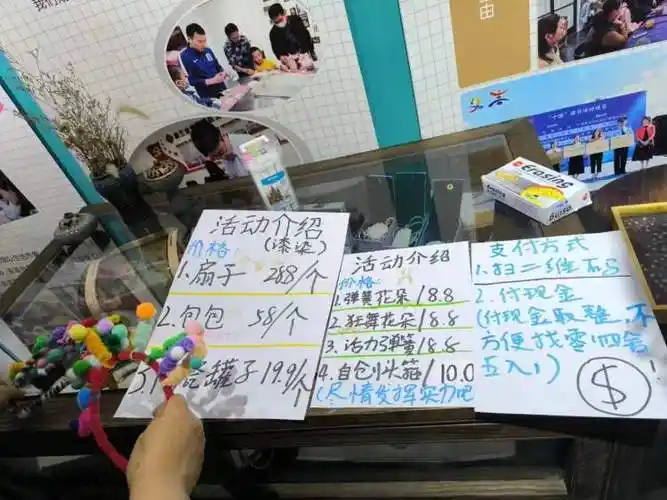 由
活动介绍
价格:
(漆染)
1.扇子 288/个
2.包包 58/个
罐子 19.9/个
活动介绍
价格:
1.弹簧花朵/8.8
2.狂舞花朵/8.8
3.活力弹簧/8.8
4.自创小头箍/10.0
(尽情发挥实力吧
支付方式
1.扫二维码
2.付现金
(付现金取整,不
方便找零四舍
五入!)
$
Erasing